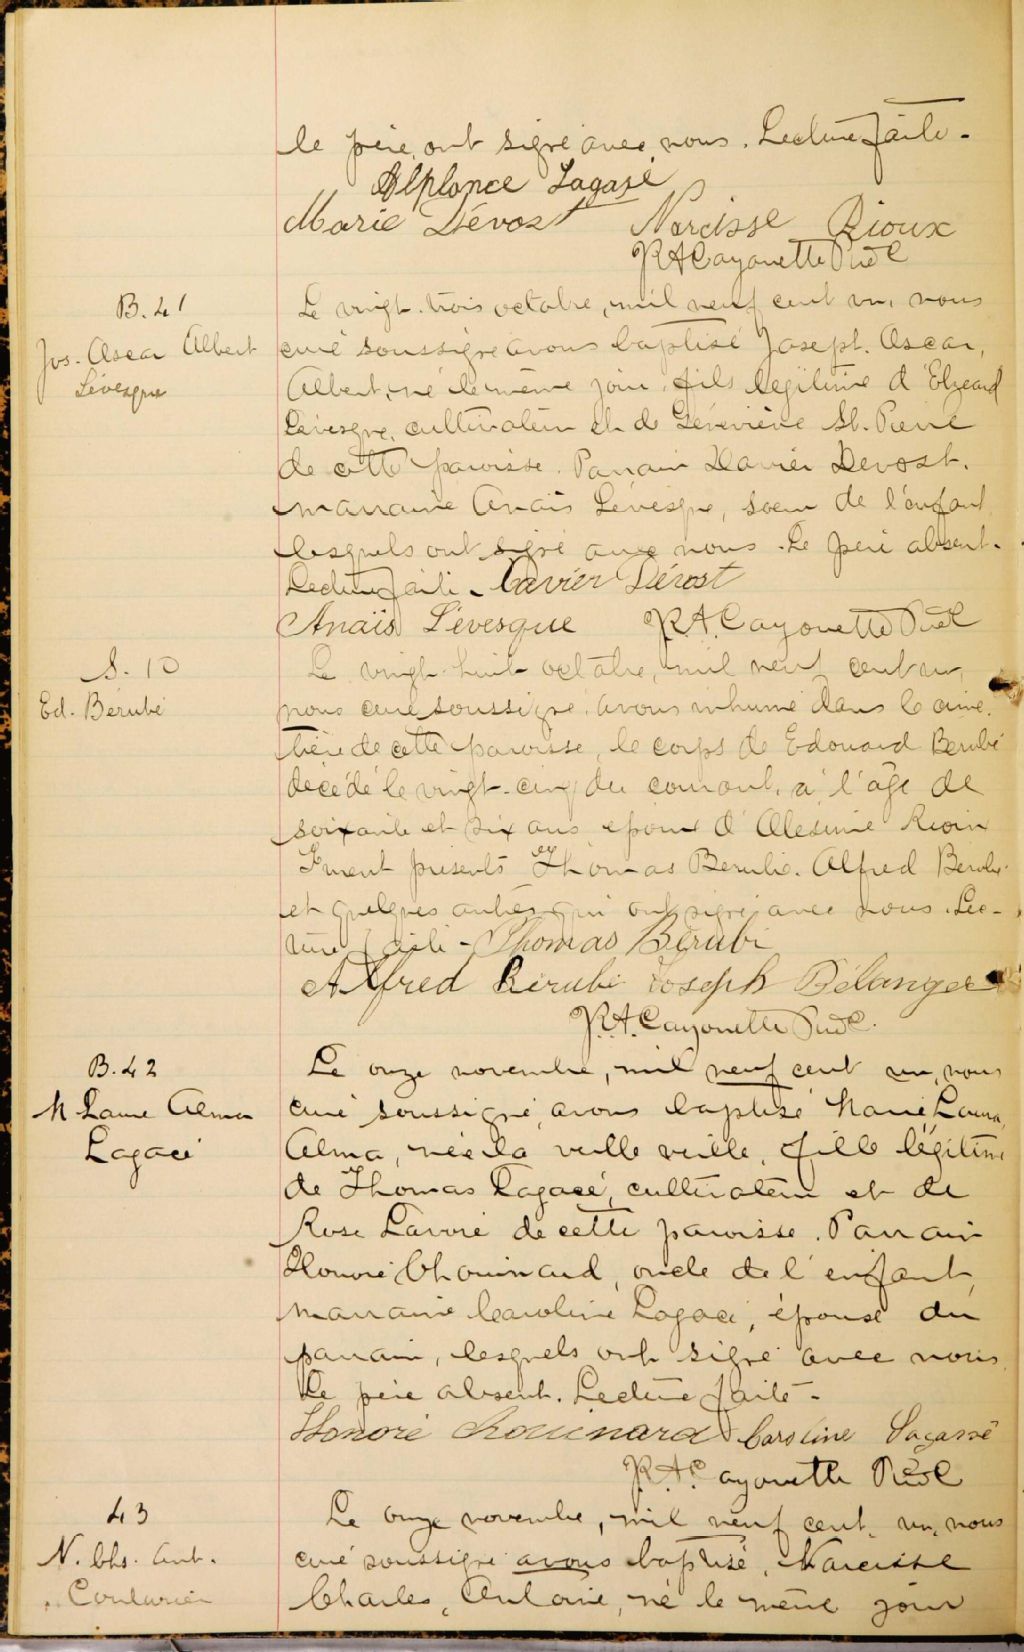 le père, ont signé avec nous. Lecture faite -
Alphonce Lagasé
Marie Dévost Narcisse Rioux
J.R.A. Cayouette Ptre C
B. 41
Jos. Oscar Albert
Lévesque
Le vingt-trois octobre, mil neuf cent un, nous
curé soussigné avons baptisé Joseph. Oscar,
Albert, né le même jour, fils légitime d'Elzeard
Lévesque, cultivateur et de Géneviève St. Pierre
de cette paroisse. Parrain Xavier Devost.
marraine Anaïs Lévesque, soeur de l'enfant,
lesquels ont signé avec nous. Le père absent.
Lecture faite - Xavier Dévost
Anaïs Lévesque J.R.A. Cayouette Ptre C
S. 10
Ed. Bérubé
Le vingt-huit octobre, mil neuf cent un,
nous curé soussigné avons inhumé dans le cime-
tière de cette paroisse, le corps de Edouard Berubé
décédé le vingt-cinq du courant, a l'âge de
soixante et six ans époux d'
Furent présents Thomas Berubé. Alfred Berube
et quelques autres qui ont signé avec nous. Lec-
ture faite - Thomas Bérubé
Alfred Bérubé Joseph Bélanger
J.R.A. Cayouette Ptre C.
B. 42
M Laura Alma
Lagacé
Le onze novembre, mil neuf cent un, nous
curé soussigné, avons baptisé Marie Laura,
Alma, née la veille veille, fille légitime
de Thomas Lagacé, cultivateur et de
Rose Lavoie de cette paroisse. Parrain
Honoré Chouinard, oncle de l'enfant,
marraine Caroline Lagacé, épouse du
parrain, lesquels ont signé avec nous.
Le père absent. Lecture faite -
Honoré Chouinard Caroline Lagassé
J.R.A. Cayouette Ptre C
43
N. Chs. Ant.
Couturier
Le onze novembre, mil neuf cent, un, nous
curé soussigné avons baptisé, Narcisse
Charles, Antoine, né le même jour